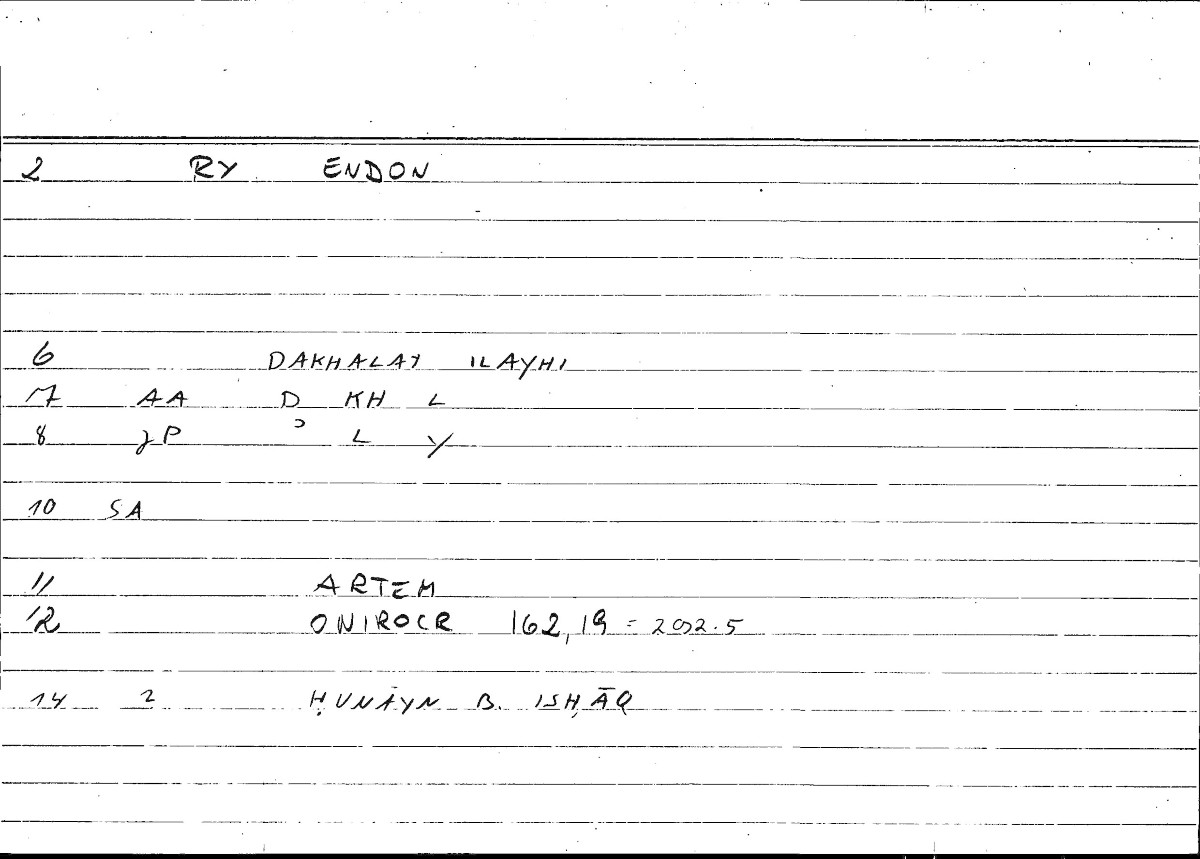 2 RY ENDON
6 DAKHALAT ILAYHI
7 AA D KH L
8 JP ʾ L Y
10 SA
11 ARTEM
12 ONIROCR 162,19 = 292.5
14 2 ḤUNAYN B. ISḤĀQ